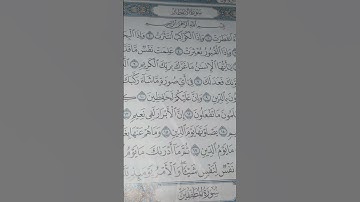 سُورَةُ الانفِطَارِ
بِسْمِ اللَّهِ الرَّحْمَٰنِ الرَّحِيمِ
انفَطَرَتْ ۝ وَإِذَا الْكَوَاكِبُ انتَثَرَتْ ۝ وَإِذَا
الْقُبُورُ بُعْثِرَتْ ۝ عَلِمَتْ نَفْسٌ مَّا
يَٰٓأَيُّهَا الْإِنسَٰنُ مَا غَرَّكَ بِرَبِّكَ الْكَرِيمِ ۝
فَعَدَلَكَ ۝ فِىٓ أَىِّ صُورَةٍ مَّا شَآءَ رَكَّبَكَ
بِالدِّينِ ۝ وَإِنَّ عَلَيْكُمْ لَحَٰفِظِينَ ۝
مَا تَفْعَلُونَ ۝ إِنَّ الْأَبْرَارَ لَفِى نَعِيمٍ ۝
يَصْلَوْنَهَا يَوْمَ الدِّينِ ۝ وَمَا هُمْ عَنْهَا
مَا يَوْمُ الدِّينِ ۝ ثُمَّ مَآ أَدْرَىٰكَ مَا يَوْمُ
نَفْسٌ لِّنَفْسٍ شَيْـًٔا وَالْأَمْرُ يَوْمَئِذٍ
سُورَةُ المُطَفِّفِينَ